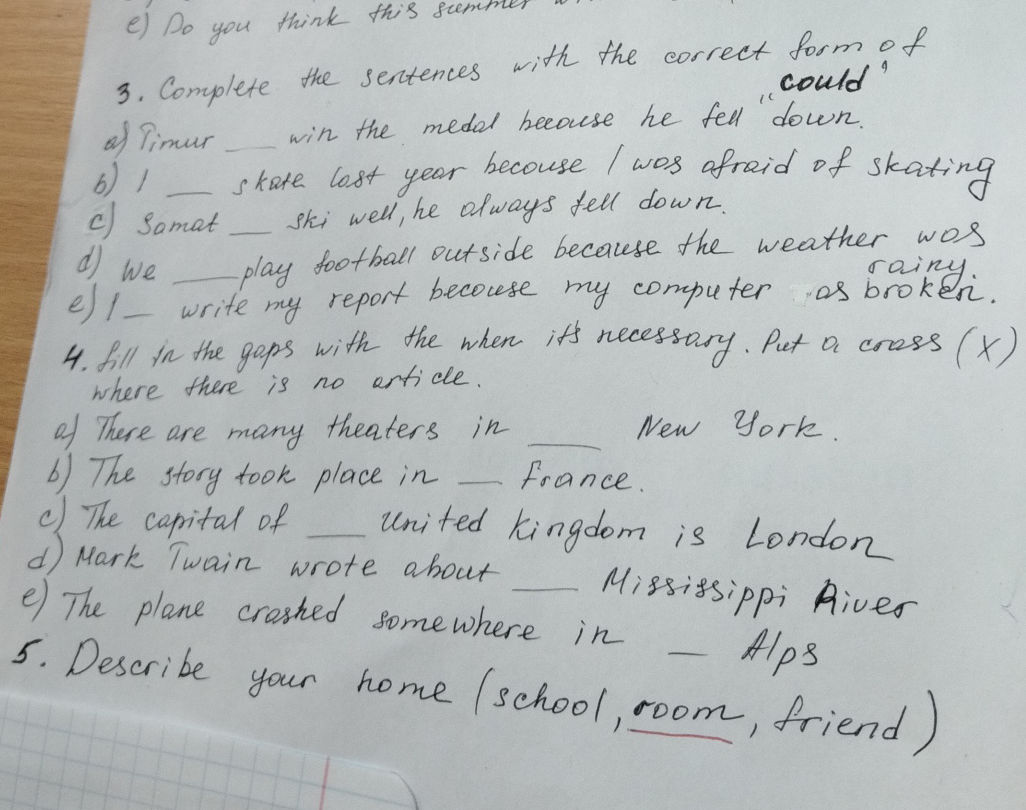 e) Do you think this summer
3. Complete the sentences with the correct form of
"could"
a) Timur ___ win the medal becouse he fell down.
b) I ___ skate last year becouse I was afraid of skating
c) Samat ___ ski well, he always fell down.
d) We ___ play football outside because the weather was
rainy.
e) I _ write my report becouse my computer as broken.
4. fill in the gaps with the when it's necessary. Put a cross (X)
where there is no article.
a) There are many theaters in ___ New York.
b) The story took place in __ France.
c) The capital of ___ United kingdom is London
d) Mark Twain wrote about ___ Mississippi River
e) The plane crashed somewhere in __ Alps
5. Describe your home (school, room, friend)